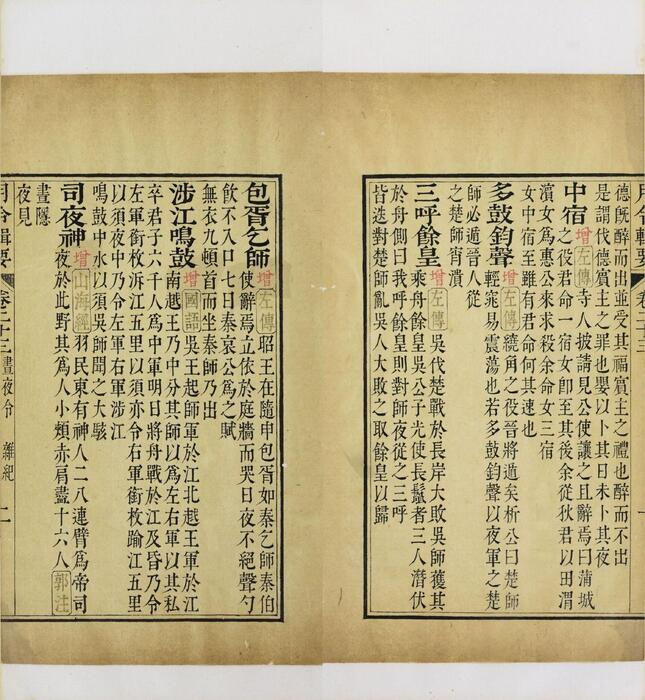 月令輯要
一
德旣醉而出並受其福賓主之禮也醉而不出
是謂伐德賓主之罪也嬰以卜其日未卜其夜
中宿 增 左傳 寺人披請見公使讓之且辭焉曰蒲城
之役君命一宿女卽至其後余從狄君以田渭
濱女爲惠公來求殺余命女三宿
女中宿至雖有君命何其速也
多鼓鈞聲 增 左傳 繞角之役晉將遁矣析公曰楚師
輕窕易震蕩也若多鼓鈞聲以夜軍之楚
師必遁晉人從
之楚師宵潰
三呼餘皇 增 左傳 吳伐楚戰於長岸大敗吳師獲其
乘舟餘皇吳公子光使長鬛者三人潛伏
於舟側曰我呼餘皇則對師夜從之三呼
皆迭對楚師亂吳人大敗之取餘皇以歸
包胥乞師 增 左傳 昭王在隨申包胥如秦乞師秦伯
使辭焉立依於庭牆而哭日夜不絕聲勺
飲不入口七日秦哀公爲之賦
無衣九頓首而坐秦師乃出
涉江鳴鼓 增 國語 吳王起師軍於江北越王軍於江
南越王乃中分其師以爲左右軍以其私
卒君子六千人爲中軍明日將舟戰於江及昏乃令
左軍銜枚泝江五里以須亦令右軍銜枚踰江五里
以須夜中乃令左軍右軍涉江
鳴鼓中水以須吳師聞之大駭
司夜神 增 山海經 羽民東有神人二八連臂爲帝司
夜於此野其爲人小頰赤肩盡十六人 郭注
晝隱
夜見
月令輯要 卷二十三 晝夜令 雜紀 二